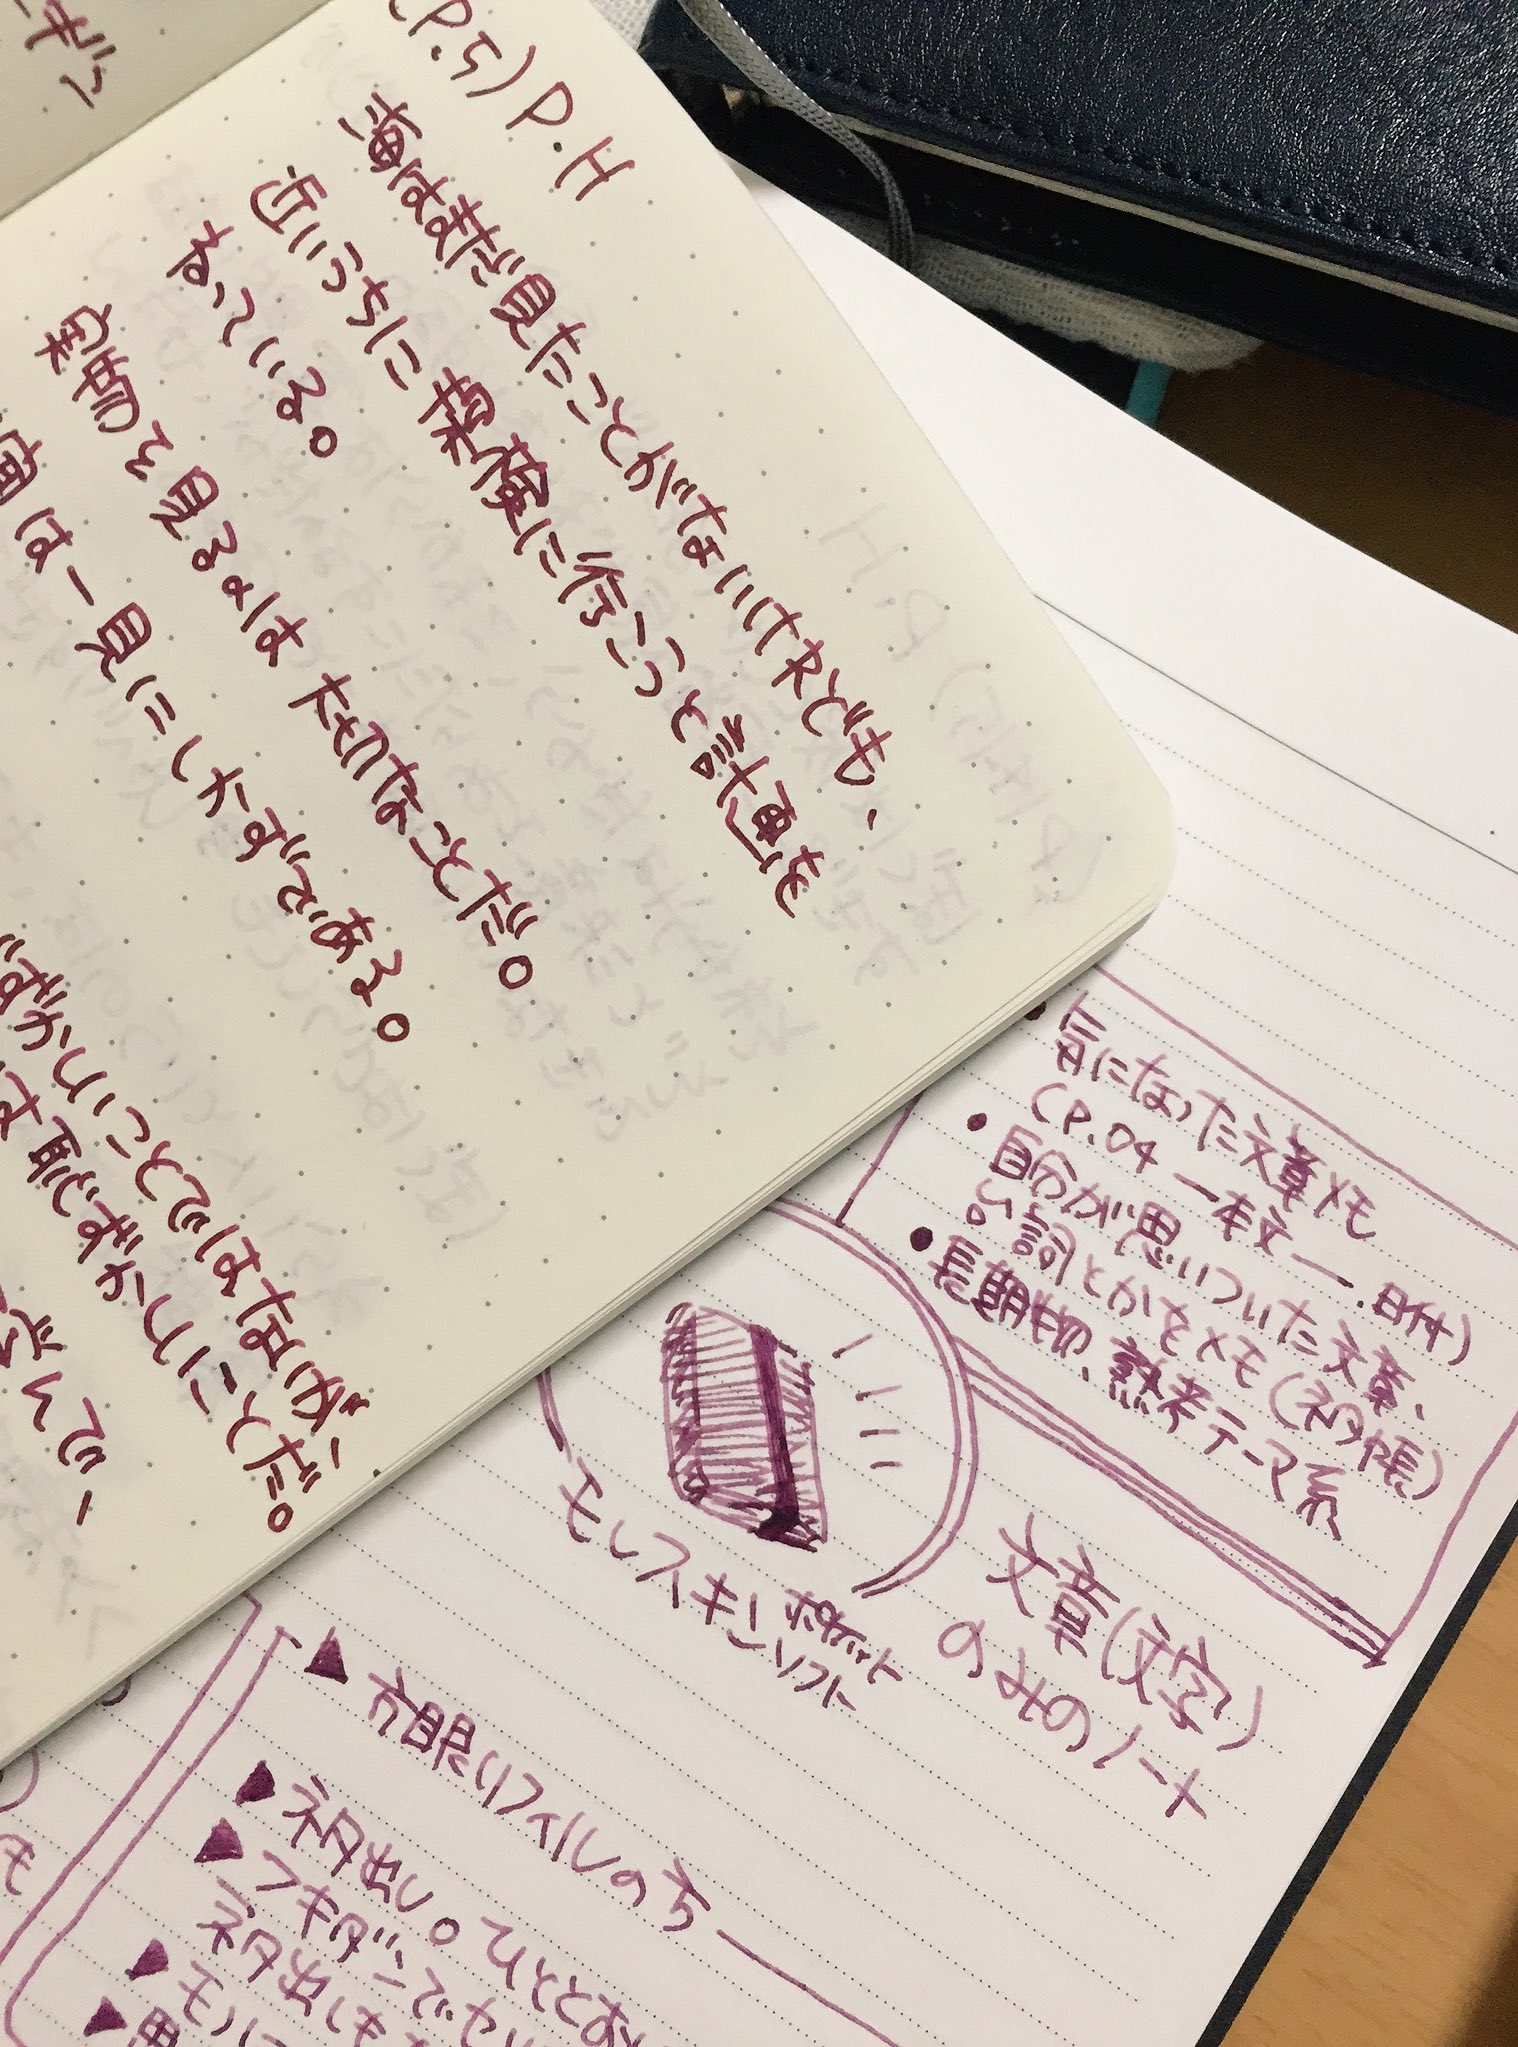 ーギン
(P.5) P.H
海はまだ見たことがないけれども、
近いうちに探検に行こうと計画を
ねっている。
実物を見るのは大切なことだ。
聞は一見にしかずである。
ずかしいことではないが、
は恥ずかしいことだ。
んで、
気になった文章メモ
(P.04 ー本文ー.日付)
• 自分が思いついた文章、
台詞とかをメモ(ネタ帳)
• 長期物、熟考テーマ系
文章(文字)
のみのノート
モレスキン ポケット
ソフト
▲ 方眼リフィルの方 ―
▲ ネタ出し。ひととお
▲ フキダシでセリ
ネタ出しも
▲ モノに
▲ 思
モ